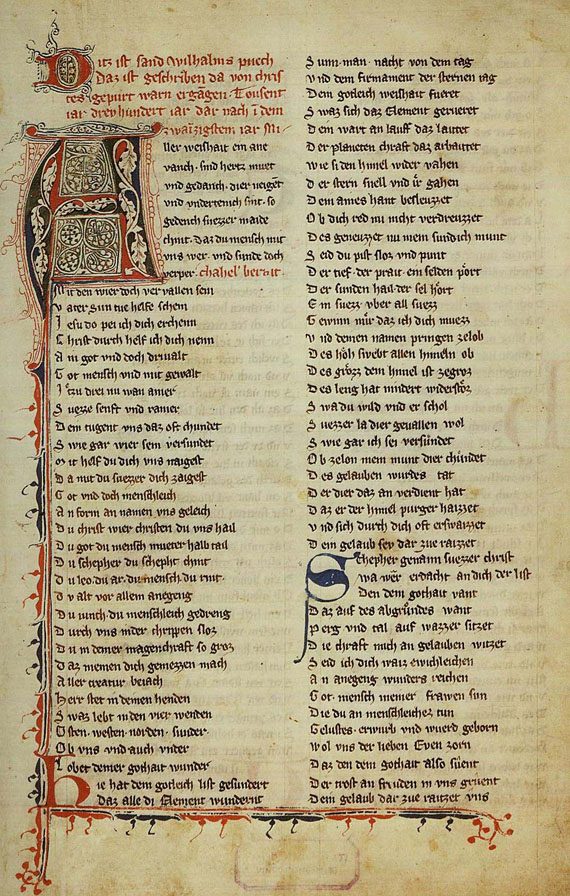 Ditz ist sand wilhalms puech
Daz ist geschriben da von chris
tes gepurt warn ergangen Tousent
iar drevhundert iar dar nach i dem
zwaizigstem iar
Aller weishait ein ane
vanch. sind hertz muet
vnd gedanch. dier neiget
vnd vndertenich sint. so
gedench suezzer maide
chint. daz du mensch mit
vns wer. vnd sunde doch
verper. 
Mit den wier doch ver vallen sein
Vater sun tue helfe schein
Iesu do pei ich dich erchenn
Christ durch helf ich dich nenn
Ain got vnd doch driualt
Got mensch vnd mit gewalt
I tzu drei nu wan ainer
Suezze senft vnd rainer
Dein tugent vns daz oft chundet
Swie gar wier sein versundet
mit helf du dich vns naigest
Da mit du suezzer dich zaigest
Got vnd doch menschleich
An form an namen vns geleich
Du christ wier christen du vns hail
Du got du mensch mueter halb tail
Du schepher du schepht chint
Du leo du ar du mensch du rint
Du alt vor allem anegeng
Du iunch du menschleich gedreng
Durch vns in der chrippen sloz
Du in deiner magenchraft so groz
Daz niemen dich gemezzen mach
Aller creatur beiach
Herr stet in deinen henden
Swaz lebt in den vier wenden
Osten. westen. norden. sunder.
Ob vns vnd auch vnder
Lobet deiner gothait wunder
Hie hat dein gotleich list gesundert
Daz alle di Element wundernt
Sunn. man. nacht von dem tag
Vnd dem firmament der sternen iag
Dein gotleich weishait fueret
Swaz sich daz Element gerueret
Dein wart an lauff daz lautet
Der planeten chraft daz arbaittet
Wie si den himel wider vahen
Der stern snell vnd ir gahen
Dein aines hant besleuzzet
Ob dich red nu nicht verdreuzzet
Des geneuzzet nu mein sundich munt
Seid du pist sloz vnd punt
Der tief. der prait. ein selden port
Der sunden hail. der sel hort
Ein suezz vber all suezz
Gewinn mir daz ich dich muezz
Vnd deinen namen pringen ze lob
Des hoh swebt allen himeln ob
Des grozz dem himel ist ze groz
Des leng hat nindert widerstoz
Swa du wild vnd er schol
Suezzer la dier geuallen wol
Swie gar ich sei versundet
Ob ze lon mein munt dier chundet
Des gelauben wurdes tat
Der dier daz an verdient hat
Daz er der himel purger haizzet
Vnd sich durch dich oft erswaizzet
Dein gelaub sey dar zue raitzet
Schepher genant suezzer christ
Swa wer erdacht an dich der list
Den dein gothait vant
Daz auf des abgrundes want
Perg vnd tal auf wazzer sitzet
Die chraft mich an gelauben witzet
Seid ich dich waiz ewichleichen
An anegeng wunders reichen
Got. mensch meiner frawen sun
Die du an menschleichez tun
Gelustes. erwurb vnd wuerd geborn
Wol vns der lieben Even zorn
Daz den dein gothait also suent
Der trost an freuden in vns gruent
Dein gelaub dar zue raitzet vns